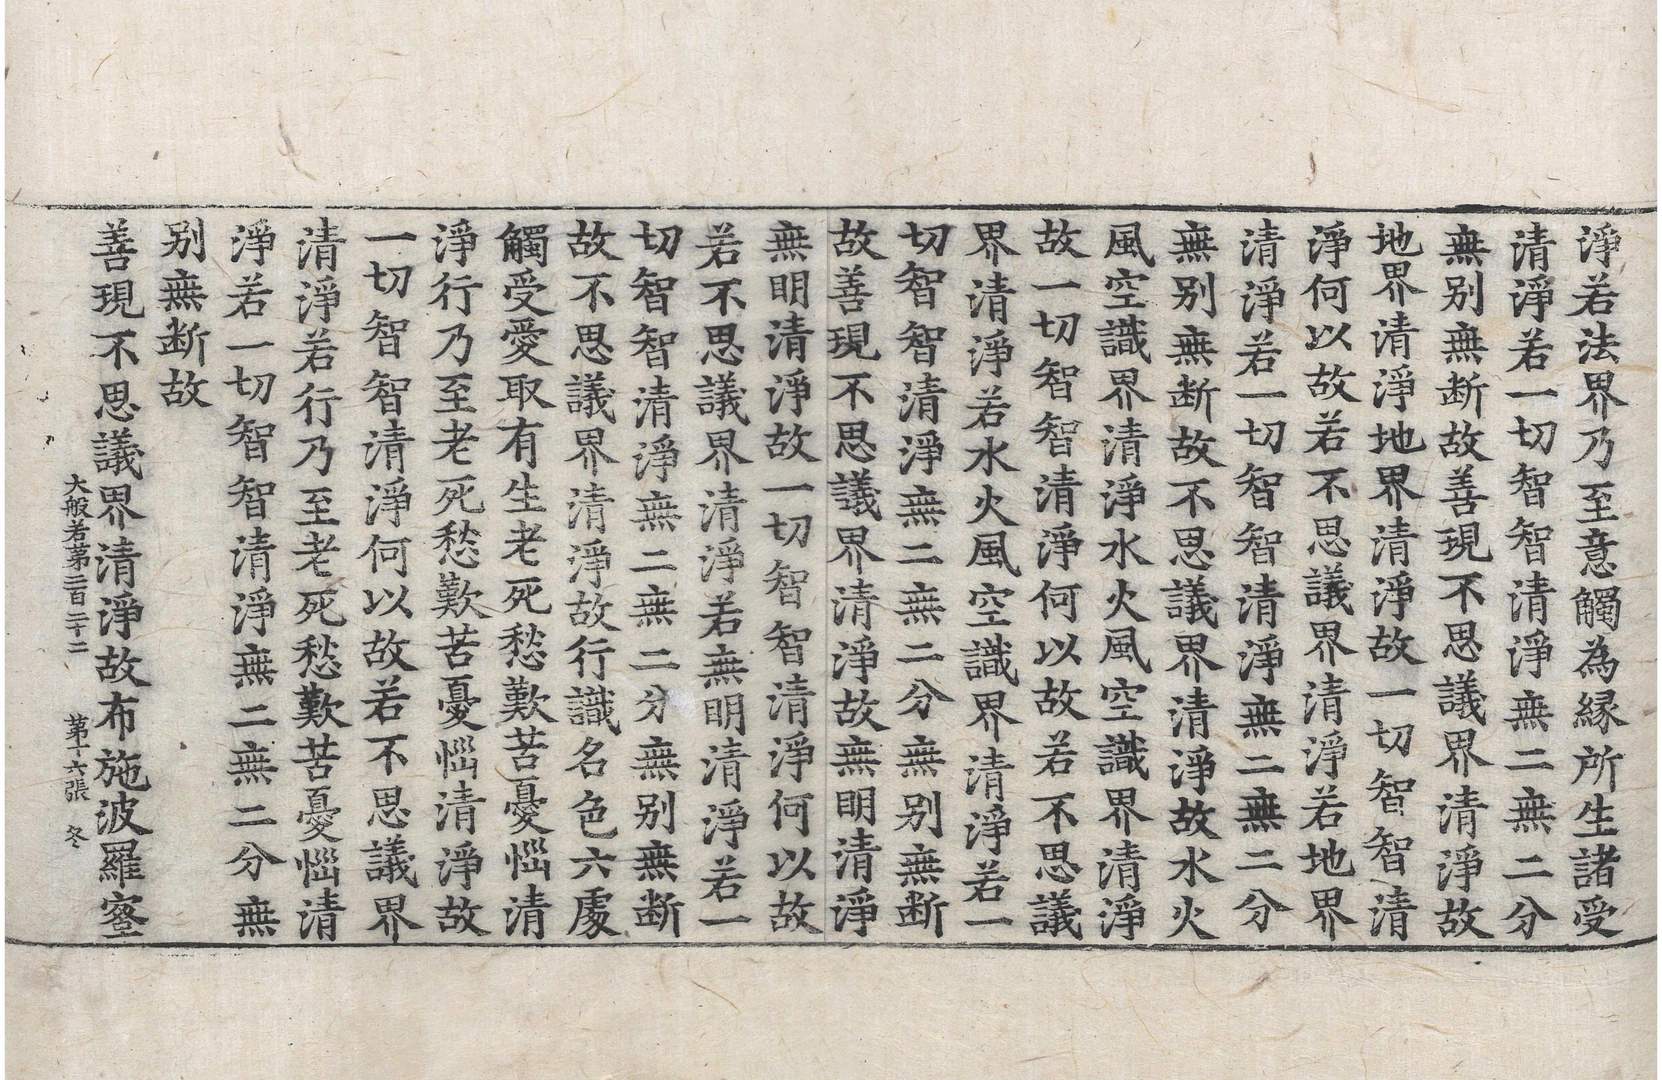 淨若法界乃至意觸為緣所生諸受
清淨若一切智智清淨無二無二分
無別無断故善現不思議界清淨故
地界清淨地界清淨故一切智智清
淨何以故若不思議界清淨若地界
清淨若一切智智清淨無二無二分
無別無断故不思議界清淨故水火
風空識界清淨水火風空識界清淨
故一切智智清淨何以故若不思議
界清淨若水火風空識界清淨若一
切智智清淨無二無二分無別無断
故善現不思議界清淨故無明清淨
無明清淨故一切智智清淨何以故
若不思議界清淨若無明清淨若一
切智智清淨無二無二分無別無断
故不思議界清淨故行識名色六處
觸受愛取有生老死愁歎苦憂惱清
淨行乃至老死愁歎苦憂惱清淨故
一切智智清淨何以故若不思議界
清淨若行乃至老死愁歎苦憂惱清
淨若一切智智清淨無二無二分無
別無断故
善現不思議界清淨故布施波羅蜜
大般若第二百二十二 第十六張 冬